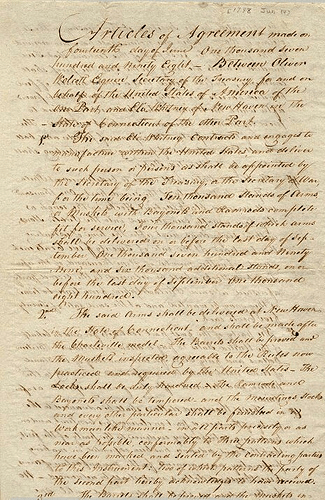 [1798 Jun 14]
Articles of Agreement made on
fourteenth day of June One thousand seven
hundred and Ninety Eight - Between Oliver
Wolcott Esquire Secretary of the Treasury for and on
behalf of the United States of America of the
One Part, and Eli Whitney of New Haven in the
State of Connecticut of the other Part.
1st The said Eli Whitney Contracts and engages to
manufacture within the United States and deliver
to such person or persons as shall be appointed by
the Secretary of the Treasury, or the Secretary of War,
for the time being, Ten thousand Stands of Arms
or Muskets, with Bayonets and Ramrods complete
fit for service. Four thousand of which arms
shall be delivered on or before the last day of Sep-
tember One thousand seven hundred and Ninety
Nine, and Six thousand additional stands, on or
before the last day of September One thousand
eight hundred.
2nd The said Arms shall be delivered at New Haven
in the State of Connecticut, and shall be made after
the Charleville model. The Barrels shall be proved and
the Muskets inspected agreeable to the Rules now
practised and required by the United States - The
Locks shall be duly hardened - The Ramrods and
Bayonets shall be tempered, and the mountings Stocks
and every other particular shall be finished in a
Workmanlike manner in all parts precisely or as
near as possible conformably to three patterns which
have been marked and sealed by the contracting parties
to this Instrument: two of which patterns the party of
the second part hereby acknowledges to have received.
3rd The United States and the Muskets in